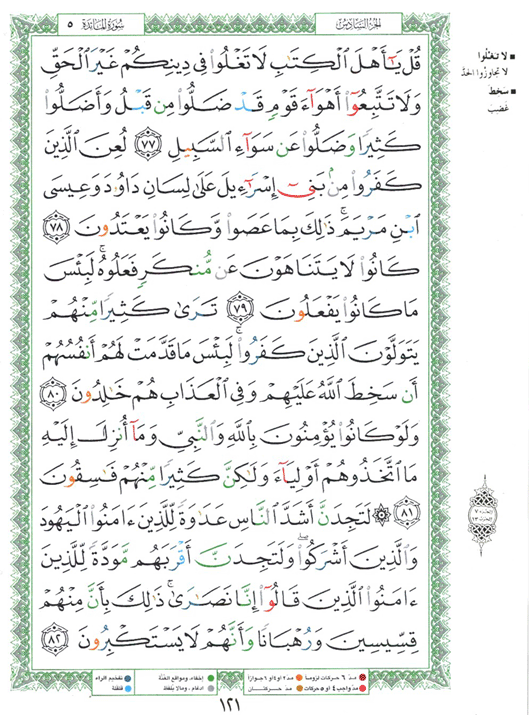 الجزء السادس
سورة المائدة ٥
قُلْ يَٰٓأَهْلَ ٱلْكِتَٰبِ لَا تَغْلُوا۟ فِى دِينِكُمْ غَيْرَ ٱلْحَقِّ
وَلَا تَتَّبِعُوٓا۟ أَهْوَآءَ قَوْمٍ قَدْ ضَلُّوا۟ مِن قَبْلُ وَأَضَلُّوا۟
كَثِيرًا وَضَلُّوا۟ عَن سَوَآءِ ٱلسَّبِيلِ ٧٧ لُعِنَ ٱلَّذِينَ
كَفَرُوا۟ مِنۢ بَنِىٓ إِسْرَٰٓءِيلَ عَلَىٰ لِسَانِ دَاوُۥدَ وَعِيسَى
ٱبْنِ مَرْيَمَ ۚ ذَٰلِكَ بِمَا عَصَوا۟ وَّكَانُوا۟ يَعْتَدُونَ ٧٨
كَانُوا۟ لَا يَتَنَاهَوْنَ عَن مُّنكَرٍ فَعَلُوهُ ۚ لَبِئْسَ
مَا كَانُوا۟ يَفْعَلُونَ ٧٩ تَرَىٰ كَثِيرًا مِّنْهُمْ
يَتَوَلَّوْنَ ٱلَّذِينَ كَفَرُوا۟ ۚ لَبِئْسَ مَا قَدَّمَتْ لَهُمْ أَنفُسُهُمْ
أَن سَخِطَ ٱللَّهُ عَلَيْهِمْ وَفِى ٱلْعَذَابِ هُمْ خَٰلِدُونَ ٨٠
وَلَوْ كَانُوا۟ يُؤْمِنُونَ بِٱللَّهِ وَٱلنَّبِىِّ وَمَآ أُنزِلَ إِلَيْهِ
مَا ٱتَّخَذُوهُمْ أَوْلِيَآءَ وَلَٰكِنَّ كَثِيرًا مِّنْهُمْ فَٰسِقُونَ
٨١ ۞ لَتَجِدَنَّ أَشَدَّ ٱلنَّاسِ عَدَٰوَةً لِّلَّذِينَ ءَامَنُوا۟ ٱلْيَهُودَ
وَٱلَّذِينَ أَشْرَكُوا۟ ۖ وَلَتَجِدَنَّ أَقْرَبَهُم مَّوَدَّةً لِّلَّذِينَ
ءَامَنُوا۟ ٱلَّذِينَ قَالُوٓا۟ إِنَّا نَصَٰرَىٰ ۚ ذَٰلِكَ بِأَنَّ مِنْهُمْ
قِسِّيسِينَ وَرُهْبَانًا وَأَنَّهُمْ لَا يَسْتَكْبِرُونَ ٨٢
لا تغلوا
لا تجاوزوا الحد
سخط
غضب
مد ٦ حركات لزوما مد ٢ أو ٤ أو ٦ جوازا
مد واجب ٤ أو ٥ حركات مد حركتان
إخفاء، ومواقع الغنة
ادغام، وما لا يلفظ
تفخيم الراء
قلقلة
١٢١